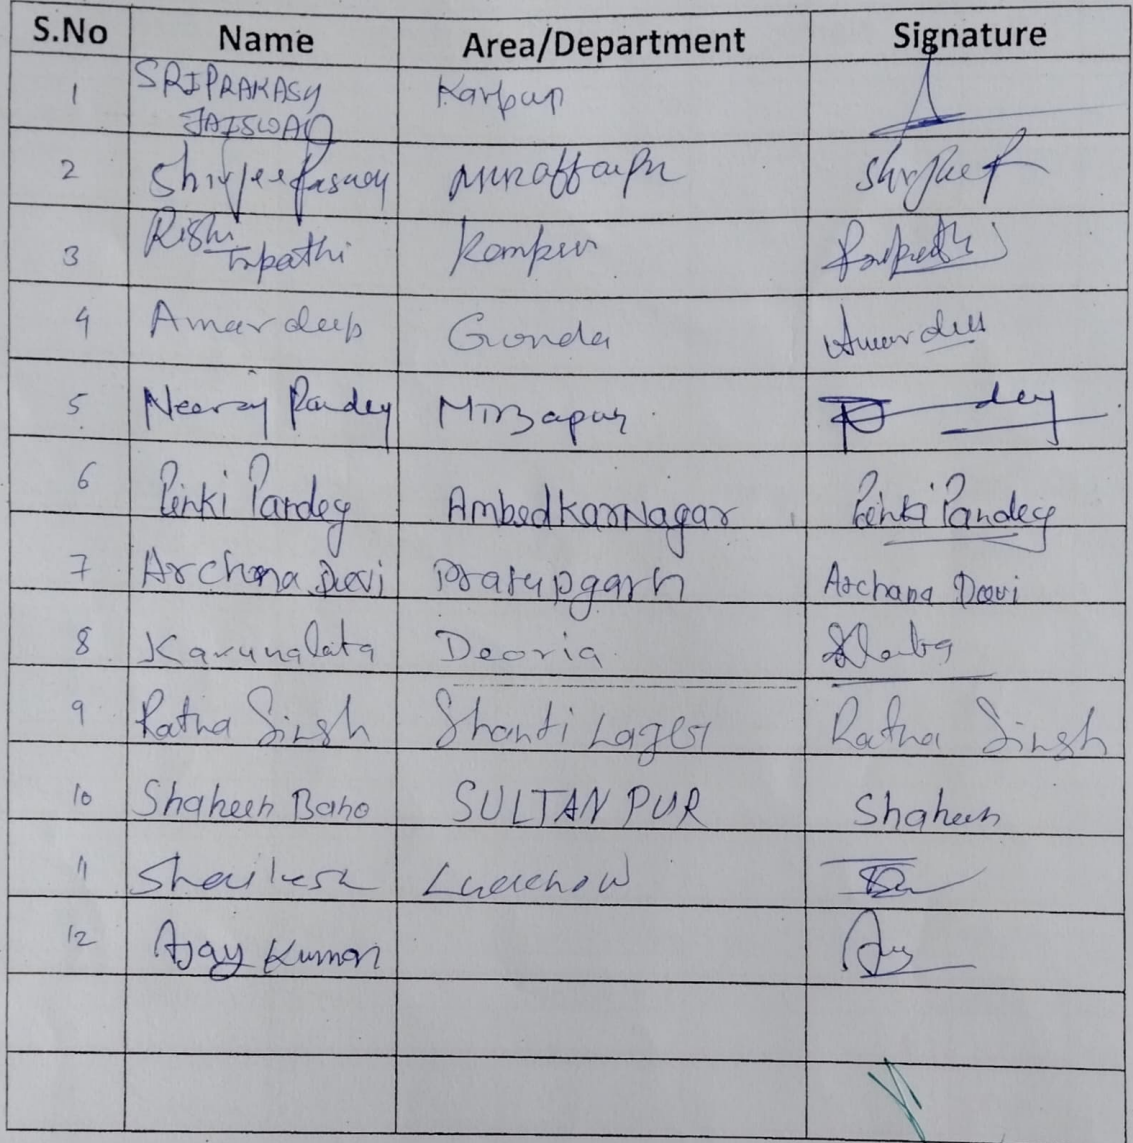 S.No Name Area/Department Signature
1 SRIPRAKASH Kanpur
JAISWAL
2 Shivjee Prasad
3 Rishi Kanpur
Tripathi
4 Amardeep Gonda Amardeep
5 Neeraj Pandey Mirzapur dey
6 Pinki Pandey AmbedkarNagar Pinki Pandey
7 Archana Devi Pratapgarh Archana Devi
8 Karunalata Deoria
9 Ratna Singh Shanti Ratna Singh
10 Shaheen Bano SULTANPUR Shaheen
11 Shailesh Lucknow
12 Ajay Kumar